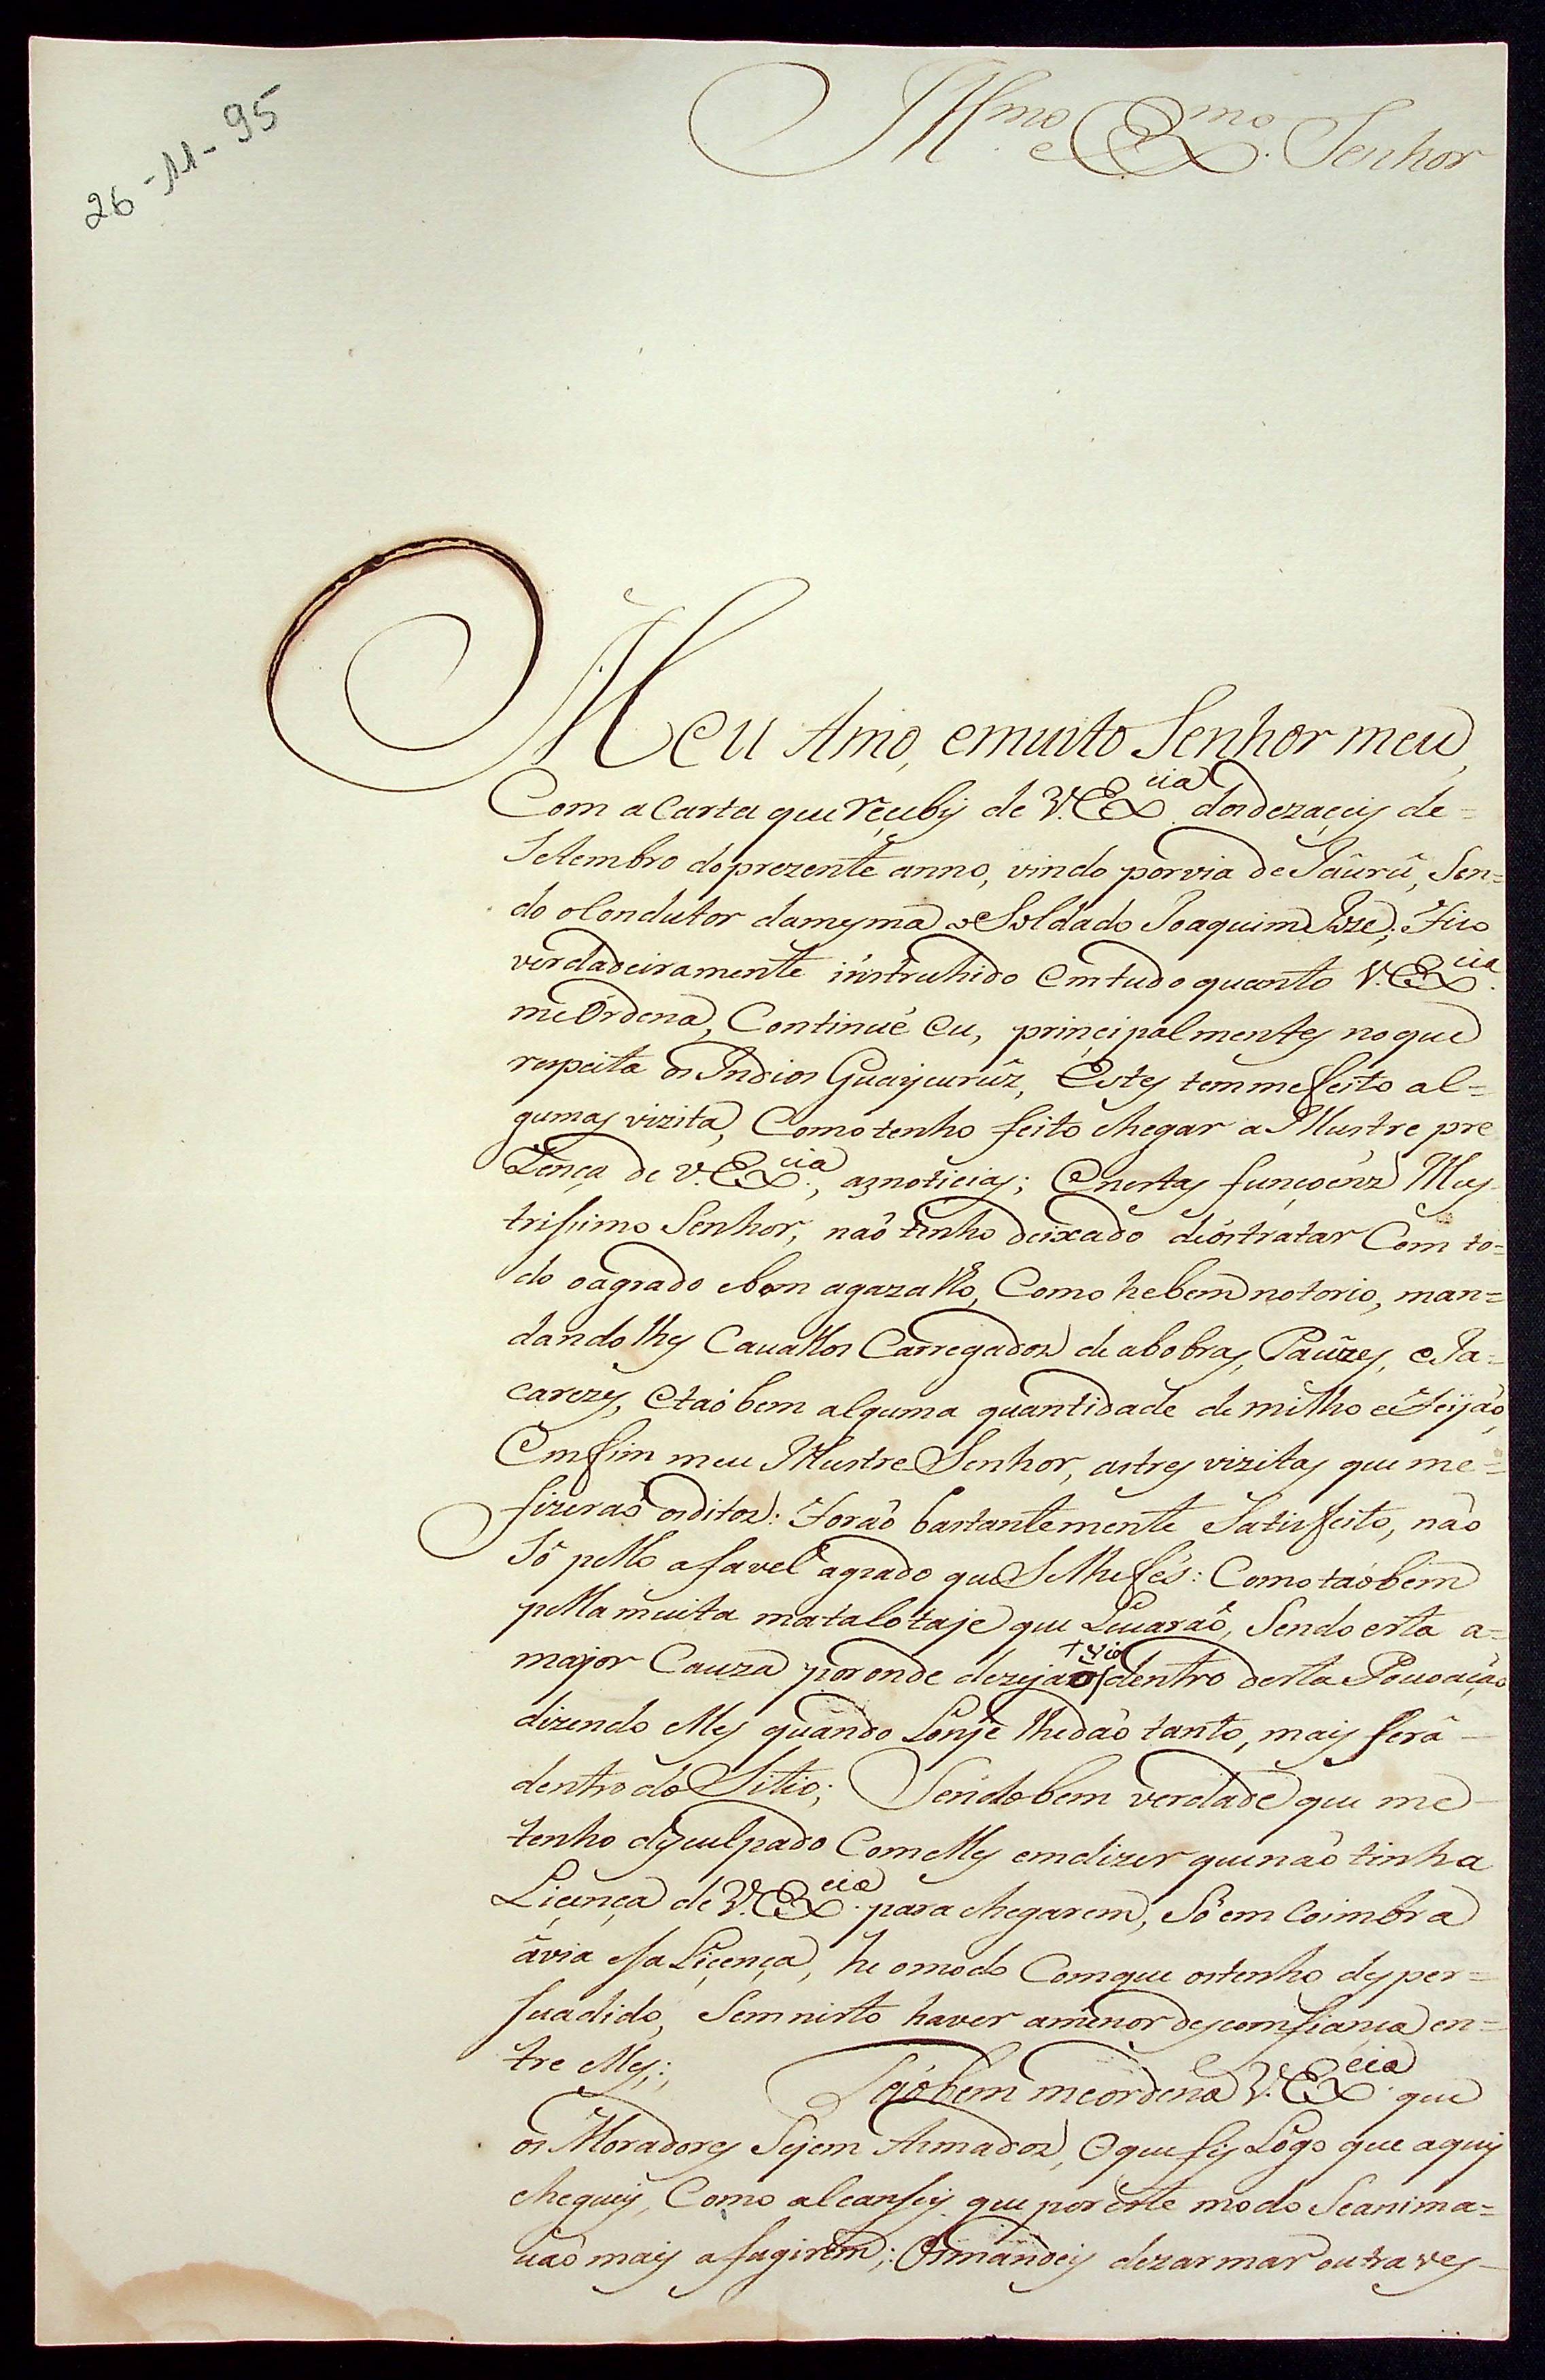 26-11-95
Illmo. e Exmo. Senhor
Meu Amo, emuito Senhor meu,
Com a Carta que reçuby de V. Excia. dosdezaçeis de=
Setembro do prezente anno, vindo por via de Jaûrû, Sen=
do o Condutor damesma o Soldado Joaquim Joze; Fico
verdadeiramente instruhido Emtudo quanto V. Excia.
me Ordena, Continué Eu, prinçipalmentes noque
respeita os Indios Guaÿcurûz, Estes temmefeito al=
gumas vizita, Como tenho feito chegar a Illustre pre
Zença de V. Excia., asnoticias; Enestas funçoéns Illus-
trissimo Senhor, naõ tenho deixado deôstratar Com to=
do oagrado ebom agazallo, Como hebem notorio, man=
dandolhes Cauallos Carregados de abobras, Paûzes, eJa=
carezes, Etaõbem alguma quantidade de milho eFeijaõ,
Emfim meu Illustre Senhor, astres vizitas que me=
fizeraõ osditos: Foraõ bastantemente Satisfeito, naõ
Sô pello afavel agrado que Selhefés: Comotaõbem
pella muita matalotaje que Leuaraõ, Sendo esta a=
major Cauza por onde dezejaõ dentro desta Pouoaçaõ
dizendo elles quando Lonje lhedaõ tanto, mais serâ-
dentro do Sitio; Sendobem verdade que me-
tenho dysculpado Comelles emdizer quenaõ tinha
Liçença de V. Excia. para chegarem, Sô em Coimbra
âvia essa Liçença, he omodo Comque ostenho desper=
suadido, Semnisto haver amenor descomfiança en=
tre elles; Taõbem meordena V. Excia. que
os Moradores Sejem Armados, Oquefis Logo que aquy
cheguey, Como alcansey que por este modo Seanima=
uaõ mais afugirem; Osmandey dezarmar outra ves-